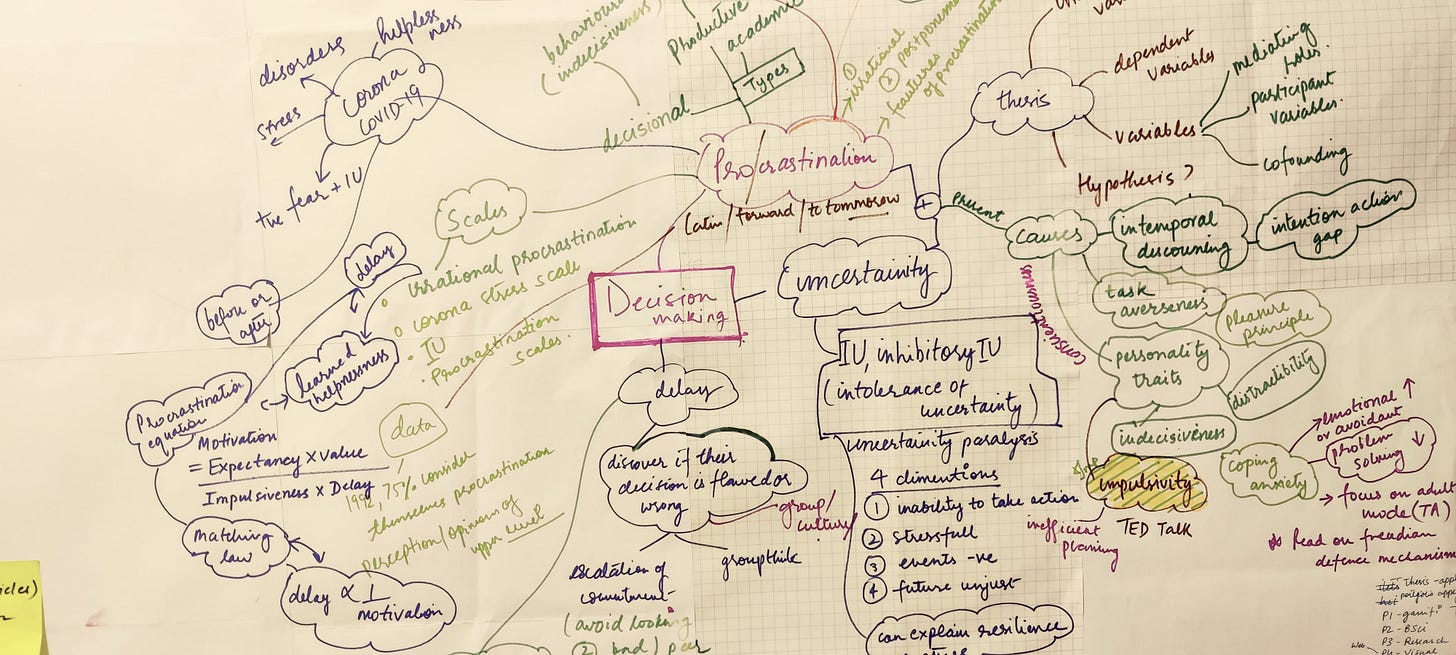 disorders
helpless
ness
Corona
COVID-19
stress
the fear + IU
before or
after
delay
learned
helplessness
Procrastination
equation
Motivation
= Expectancy x value
Impulsiveness x Delay
Matching
law
delay ∝ 1
motivation
Scales
irrational procrastination
corona stress scale
IU
Procrastination
scales.
data
1992, 75% consider
themselves procrastination
perception/opinion of
upper level
behaviour
(indecisiveness)
Productive
academic
Types
decisional
Procrastination
(latin/forward/to tommorow
① irrational
② postponement
features
of procrastination
Decision
making
delay
discover if their
decision is flawed or
wrong
group/
culture
groupthink
escalation of
commitment
(avoid looking
bad) peer
+
uncertainity
IU, inhibitory IU
(intolerance of
uncertainty)
uncertainity paralysis
4 dimentions
① inability to take action
② stressfull
③ events -ve
④ future unjust
can explain resilience
thesis
dependent
variables
variables
mediating
roles.
participant
variables.
cofounding
Hypothesis?
present
causes
intemporal
discouning
intention action
gap
task
averseness
pleasure
principle
personality
traits
distractibility
indecisiveness
impulsivity
TED Talk
inefficient
planning
coping
anxiety
emotional ↑
or avoidant
problem ↓
solving
→ focus on adult
mode (TA)
Read on freudian
defence mechanism
P2 - BSci
P3 - Research
P4 - Visual